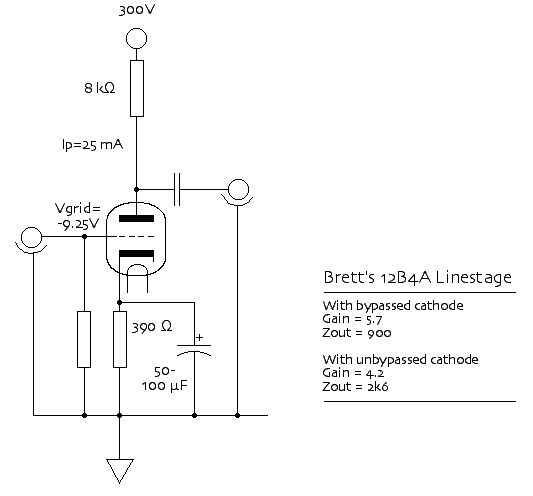 300V
8 kΩ
Ip=25 mA
Vgrid=
-9.25V
390 Ω
+
50-
100 µF
Brett's 12B4A Linestage
With bypassed cathode
Gain = 5.7
Zout = 900
With unbypassed cathode
Gain = 4.2
Zout = 2k6